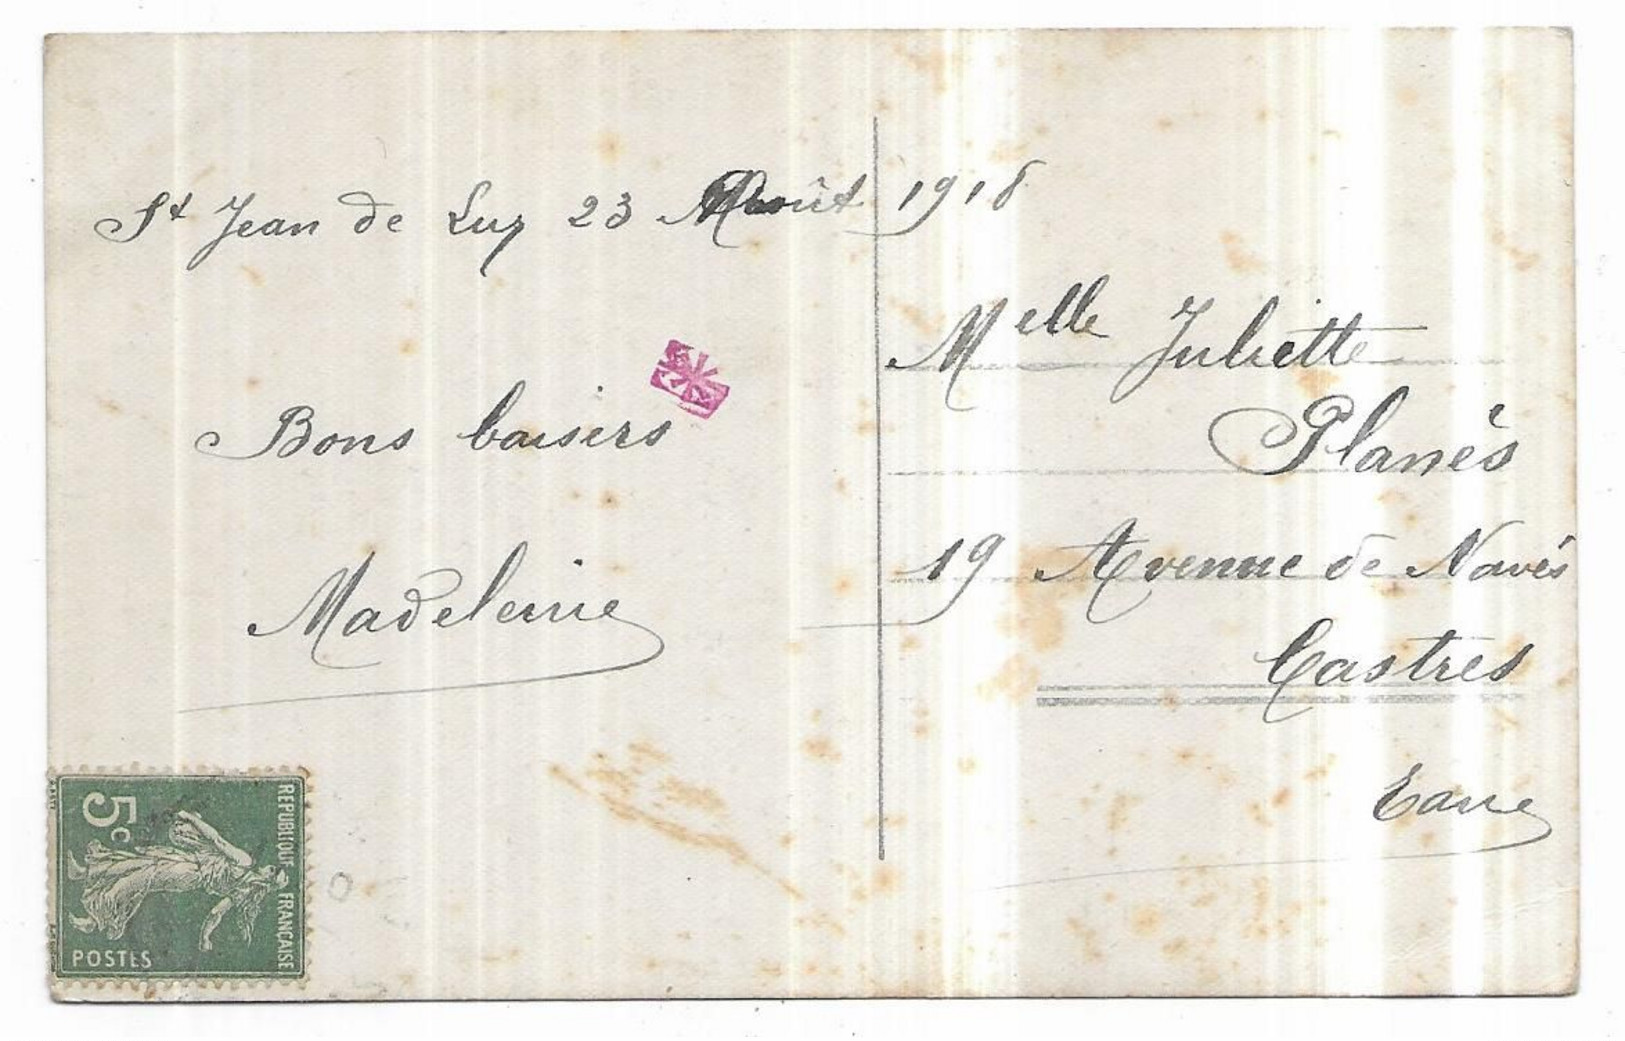 St Jean de Luz 23 Août 1918
Bons baisers
Madeleine
Melle Juliette
Planès
19 Avenue de Navès
Castres
Tarn
5c
REPUBLIQUE FRANÇAISE
POSTES